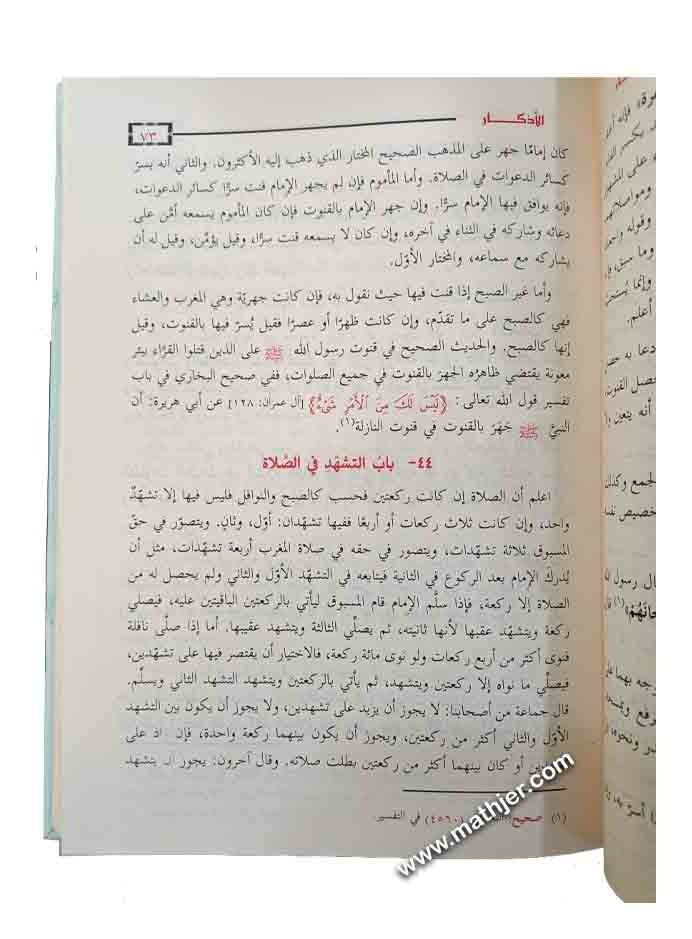 الأذكـــــار
٧٣
كان إمامًا جهر على المذهب الصحيح المختار الذي ذهب إليه الأكثرون. والثاني أنه يسرّ
كسائر الدعوات في الصلاة. وأما المأموم فإن لم يجهر الإمام قنت سرًّا كسائر الدعوات،
فإنه يوافق فيها الإمام سرًّا. وإن جهر الإمام بالقنوت فإن كان المأموم يسمعه أمَّن على
دعائه وشاركه في الثناء في آخره، وإن كان لا يسمعه قنت سرًّا، وقيل يؤمّن، وقيل له أن
يشاركه مع سماعه، والمختار الأوّل.
وأما غير الصبح إذا قنت فيها حيث نقول به، فإن كانت جهريّة وهي المغرب والعشاء
فهي كالصبح على ما تقدّم، وإن كانت ظهرًا أو عصرًا فقيل يُسرّ فيها بالقنوت، وقيل
إنها كالصبح. والحديث الصحيح في قنوت رسول الله ﷺ على الذين قتلوا القرّاء ببئر
معونة يقتضي ظاهرُه الجهرَ بالقنوت في جميع الصلوات، ففي صحيح البخاري في باب
تفسير قول الله تعالى: ﴿لَيْسَ لَكَ مِنَ ٱلْأَمْرِ شَىْءٌ﴾ [آل عمران: ١٢٨] عن أبي هريرة: أن
النبيَّ ﷺ جَهَرَ بالقنوت في قنوت النازلة(١).
٤٤- بابُ التشهّدِ في الصَّلاة
اعلم أن الصلاة إن كانت ركعتين فحسب كالصبح والنوافل فليس فيها إلا تشهّدٌ
واحد، وإن كانت ثلاث ركعات أو أربعًا ففيها تشهّدان: أوّل، وثانٍ. ويتصوّر في حقّ
المسبوق ثلاثة تشهّدات، ويتصور في حقه في صلاة المغرب أربعة تشهّدات، مثل أن
يُدركَ الإمام بعد الركوع في الثانية فيتابعه في التشهد الأوّل والثاني ولم يحصل له من
الصلاة إلا ركعة، فإذا سلَّم الإمام قام المسبوق ليأتي بالركعتين الباقيتين عليه، فيصلي
ركعة ويتشهّد عقبها لأنها ثانيته، ثم يصلّي الثالثة ويتشهد عقيبها. أما إذا صلّى نافلة
فنوى أكثر من أربع ركعات ولو نوى مائة ركعة، فالاختيار أن يقتصر فيها على تشهّدين،
فيصلّي ما نواه إلا ركعتين ويتشهد، ثم يأتي بالركعتين ويتشهد التشهد الثاني ويسلّم.
قال جماعة من أصحابنا: لا يجوز أن يزيد على تشهدين، ولا يجوز أن يكون بين التشهد
الأوّل والثاني أكثر من ركعتين، ويجوز أن يكون بينهما ركعة واحدة، فإن على
أو كان بينهما أكثر من ركعتين بطلت صلاته. وقال آخرون: يجوز أن يتشهد
(١) صحيح (٤٥٦٠) في التفسير.
www.mathjer.com